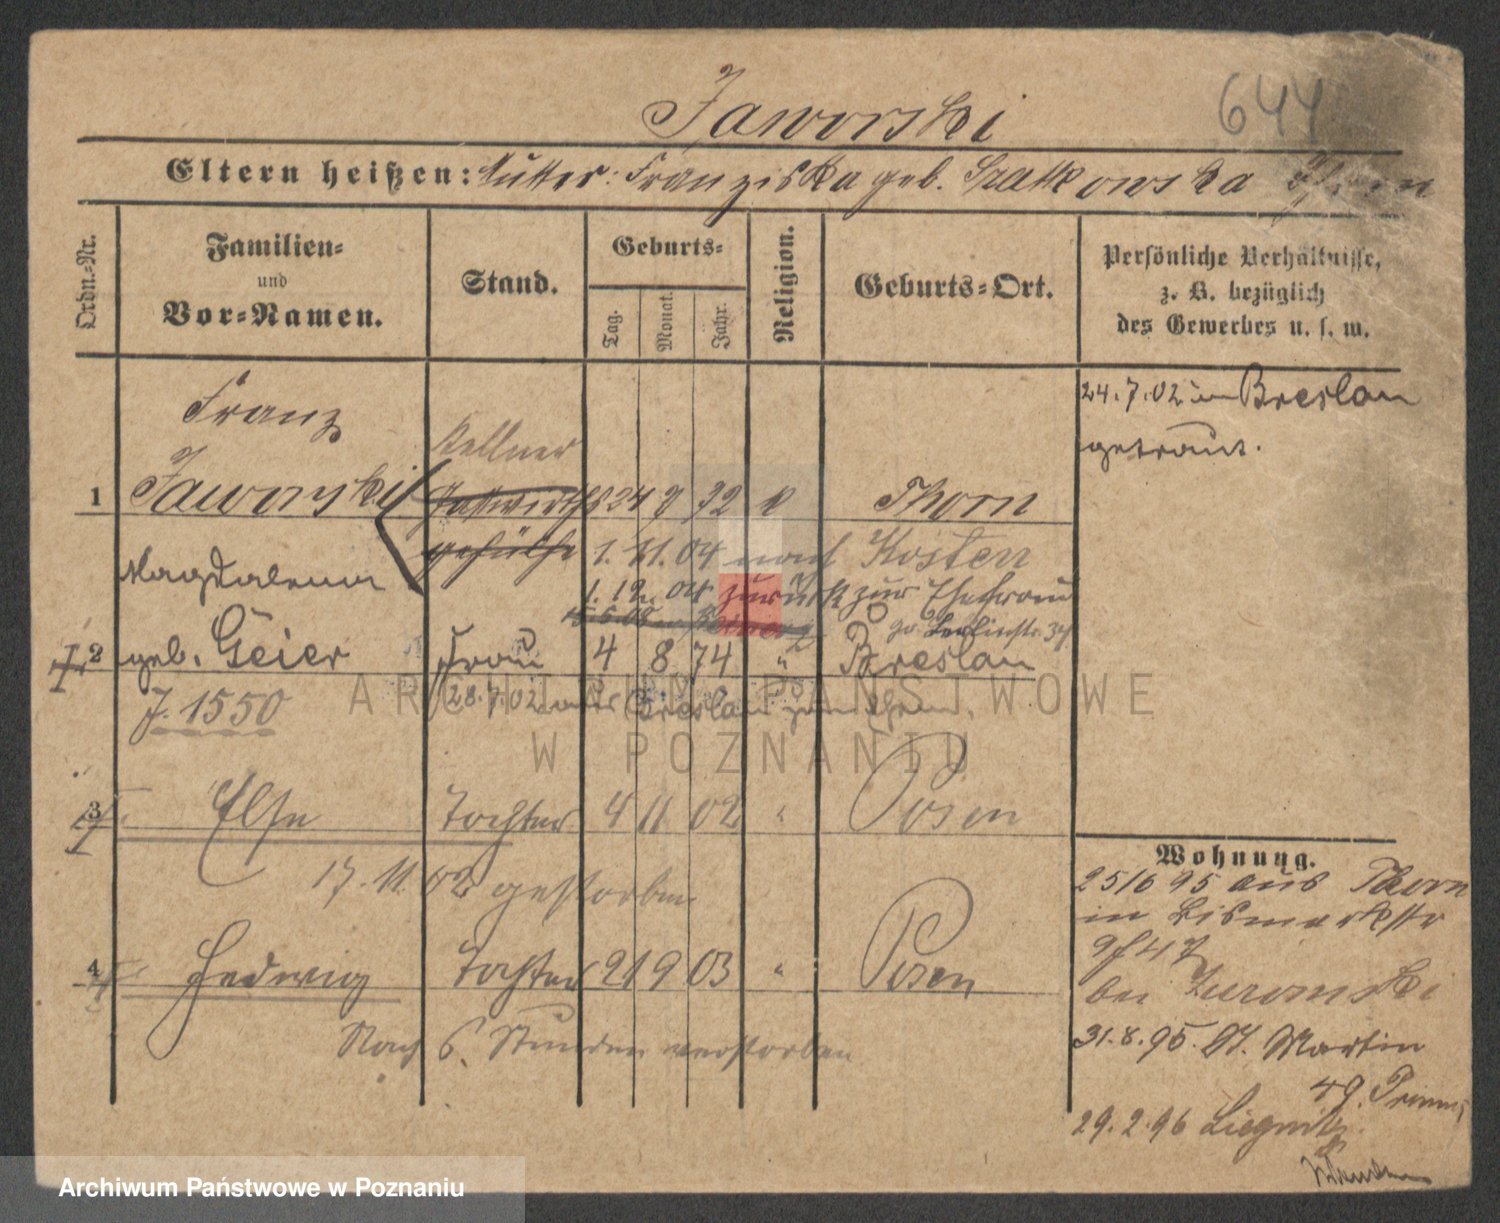 Jaworski
644
Eltern heißen: Mutter: Franziska geb.
Ordn.-Nr.
Familien-
und
Vor-Namen.
Stand.
Geburts-
Tag.
Monat.
Jahr.
Religion.
Geburts-Ort.
Persönliche Verhältnisse,
z. B. bezüglich
des Gewerbes u. s. w.
24.7.02 in Breslau
getraut.
Franz
Kellner
1 Jaworski Gastwirths 24 72 k Thorn
gehülfe 1. 11. 04 nach Kosten
Magdalena
1. 12. 04 zurück zur Ehefrau
15.5.08
2 geb. Geier Frau 4 8 74 " Breslau
J. 1550
28.7.02 aus Breslau
3 Else Tochter 4 11 02 " Posen
17. 11. 02 gestorben
4 Hedwig Tochter 21 9 03 " Posen
Nach 6 Stunden verstorben
Wohnung.
25/6 95 aus Thorn
in Bismarkstr
bei
31.8.95. St. Martin
49.
29.2.96 Liegnitz
ARCHIWUM PAŃSTWOWE
W POZNANIU
Archiwum Państwowe w Poznaniu